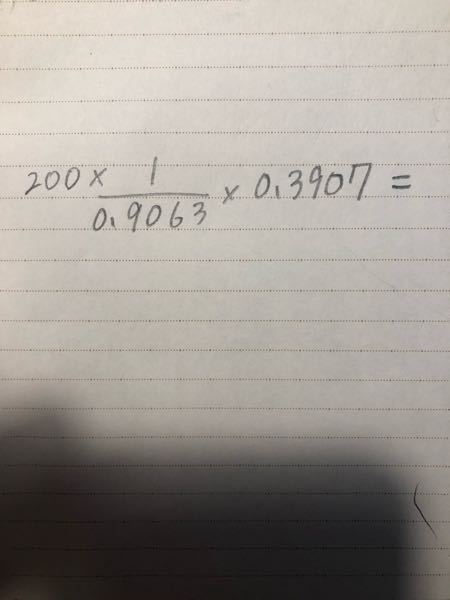 200 × 1/0.9063 × 0.3907 =